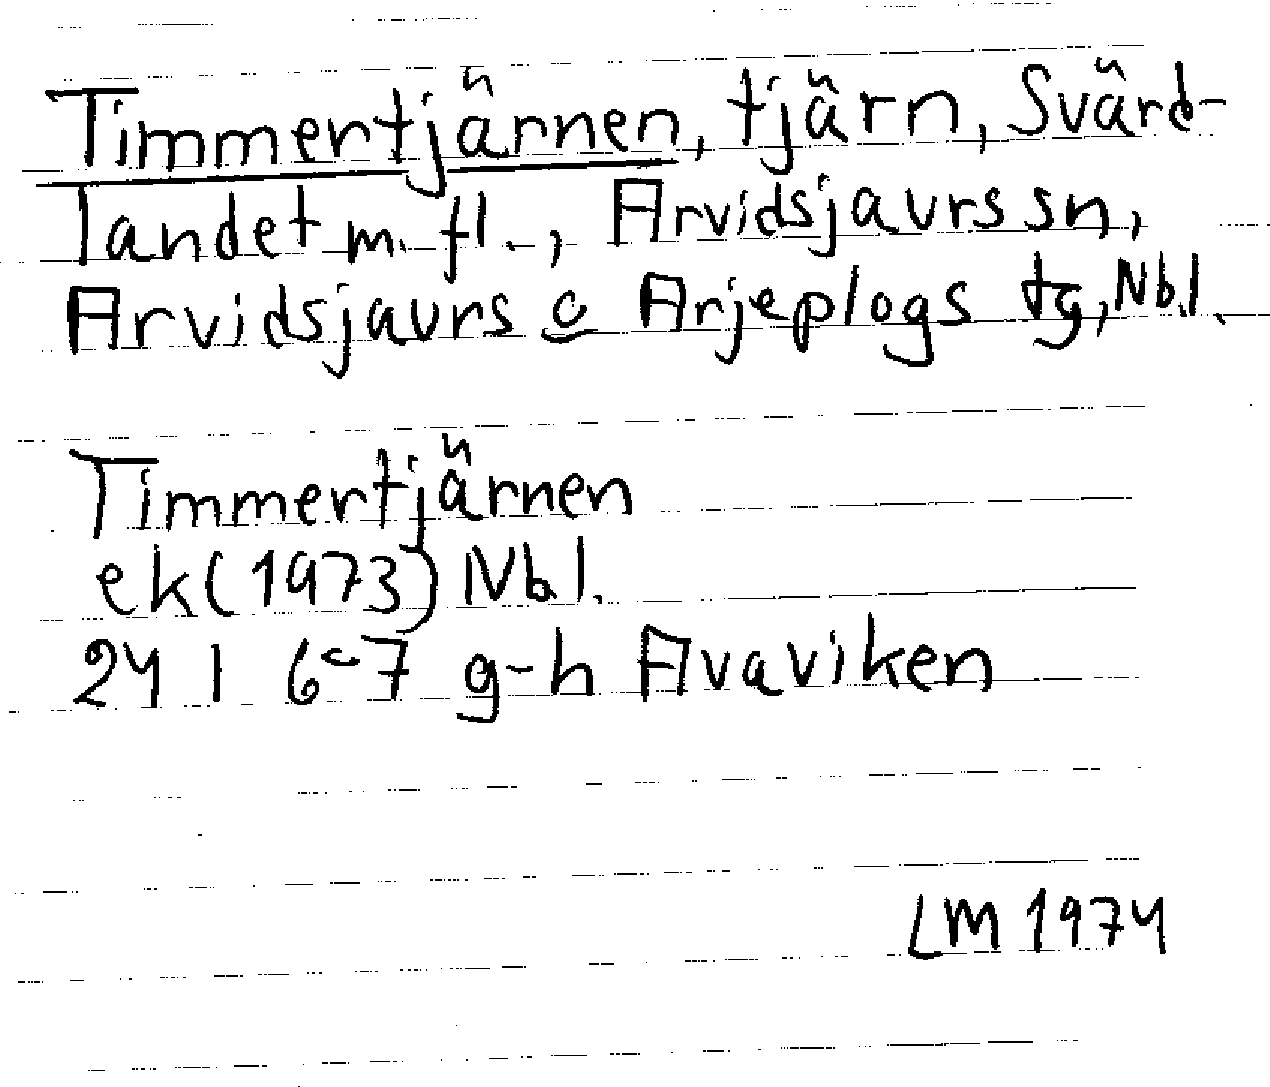 Timmertjärnen, tjärn, Svärd-
landet m. fl., Arvidsjaurs sn,
Arvidsjaurs o Arjeplogs tg, Nbl.
Timmertjärnen
ek (1973) Nbl.
24 I 6-7 g-h Avaviken
LM 1974